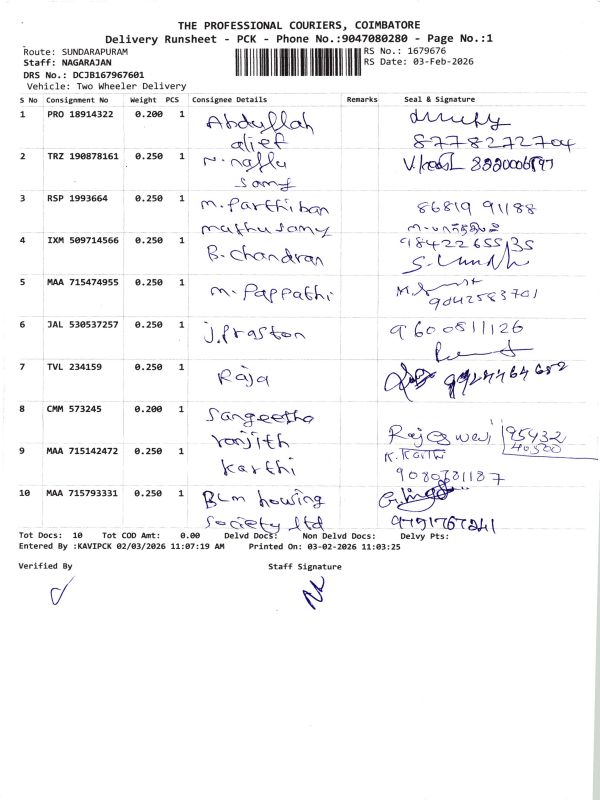 THE PROFESSIONAL COURIERS, COIMBATORE
Delivery Runsheet - PCK - Phone No.:9047080280 - Page No.:1
Route: SUNDARAPURAM RS No.: 1679676
Staff: NAGARAJAN RS Date: 03-Feb-2026
DRS No.: DCJB167967601
Vehicle: Two Wheeler Delivery
S No Consignment No Weight PCS Consignee Details Remarks Seal & Signature
1 PRO 18914322 0.200 1 Abdullah
alief 8778272704
2 TRZ 190878161 0.250 1
samy
3 RSP 1993664 0.250 1 M. Parthiban 86819 91188
muthusamy
4 IXM 509714566 0.250 1 B. Chandran 9842265535
5 MAA 715474955 0.250 1 M. Pappathi
9042583701
6 JAL 530537257 0.250 1 J. Praston 9600811126
7 TVL 234159 0.250 1 Raja
8 CMM 573245 0.200 1 Sangeetha
ranjith Rajeswari 95432
40300
9 MAA 715142472 0.250 1 Karthi K. Karthi
10 MAA 715793331 0.250 1 BLM housing
Society ltd 9791767241
Tot Docs: 10 Tot COD Amt: 0.00 Delvd Docs: Non Delvd Docs: Delvy Pts:
Entered By :KAVIPCK 02/03/2026 11:07:19 AM Printed On: 03-02-2026 11:03:25
Verified By Staff Signature